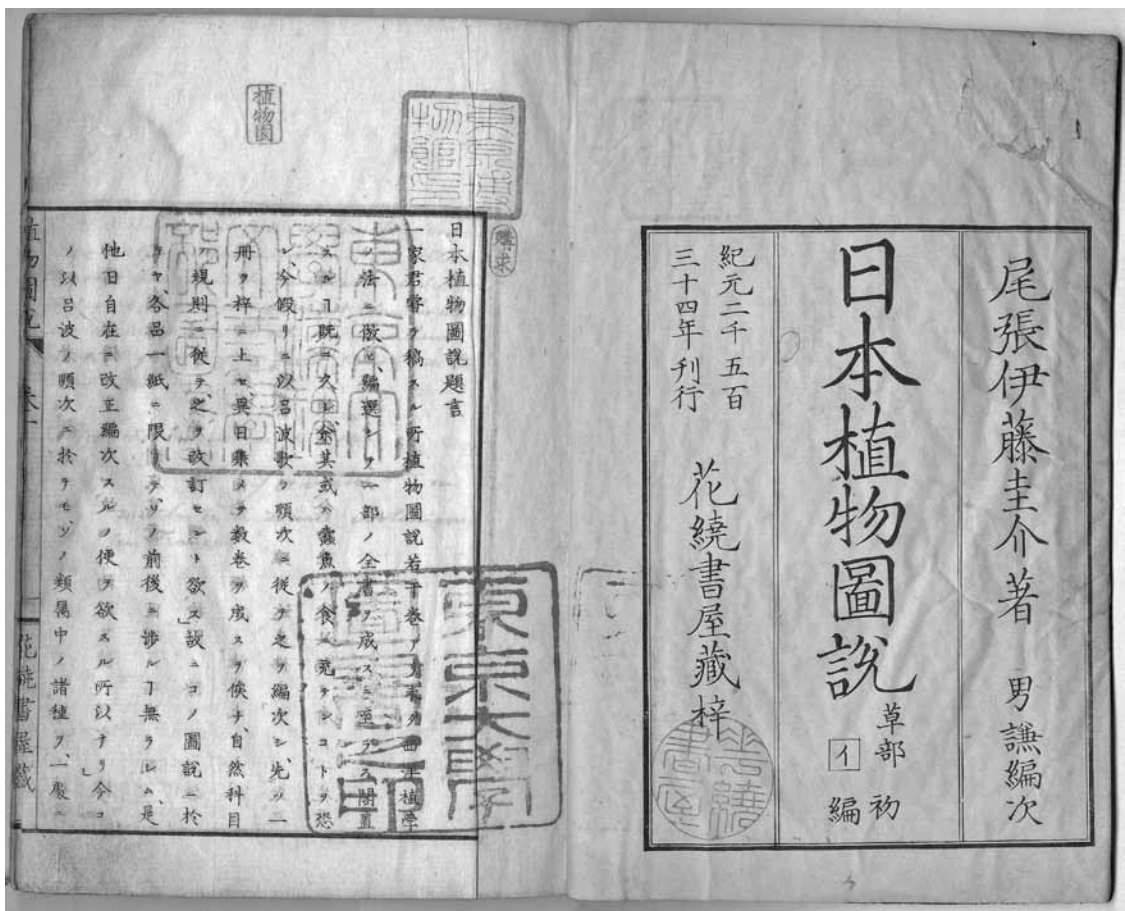 尾張伊藤圭介著 男謙編次
日本植物圖說 草部 イ 初編
紀元二千五百
三十四年刊行
花繞書屋藏梓
花繞書屋
東京博物館印
購求
植物園
東京大學圖書之印
日本植物圖說題言
一家君嘗テ稿スル所植物圖說若干卷アリ
ノ法ニ倣ヒ、編選シテ一部ノ全書ヲ成スニ至ラス閣置
スルヿ既ニ久シ余其或ハ蠹魚ノ食ニ充テンコトヲ恐
レ、今假リニ以呂波歌ノ順次ニ從テ之ヲ編次シ、先ツ一
冊ヲ梓ニ上セ異日集メテ數卷ヲ成スヲ俟チ、自然科目
ノ規則ニ從テ、之ヲ改訂セント欲ス」故ニコノ圖說ニ於
テヤ、各品一紙ニ限リテ、ソノ前後ニ涉ルヿ無ラシム、是
他日自在ニ改正編次スルノ便ヲ欲スル所以ナリ」今コ
ノ以呂波ノ順次ニ於テモ、ソノ類屬中ノ諸種ヲ、一處ニ
植物圖說 卷一 花繞書屋藏